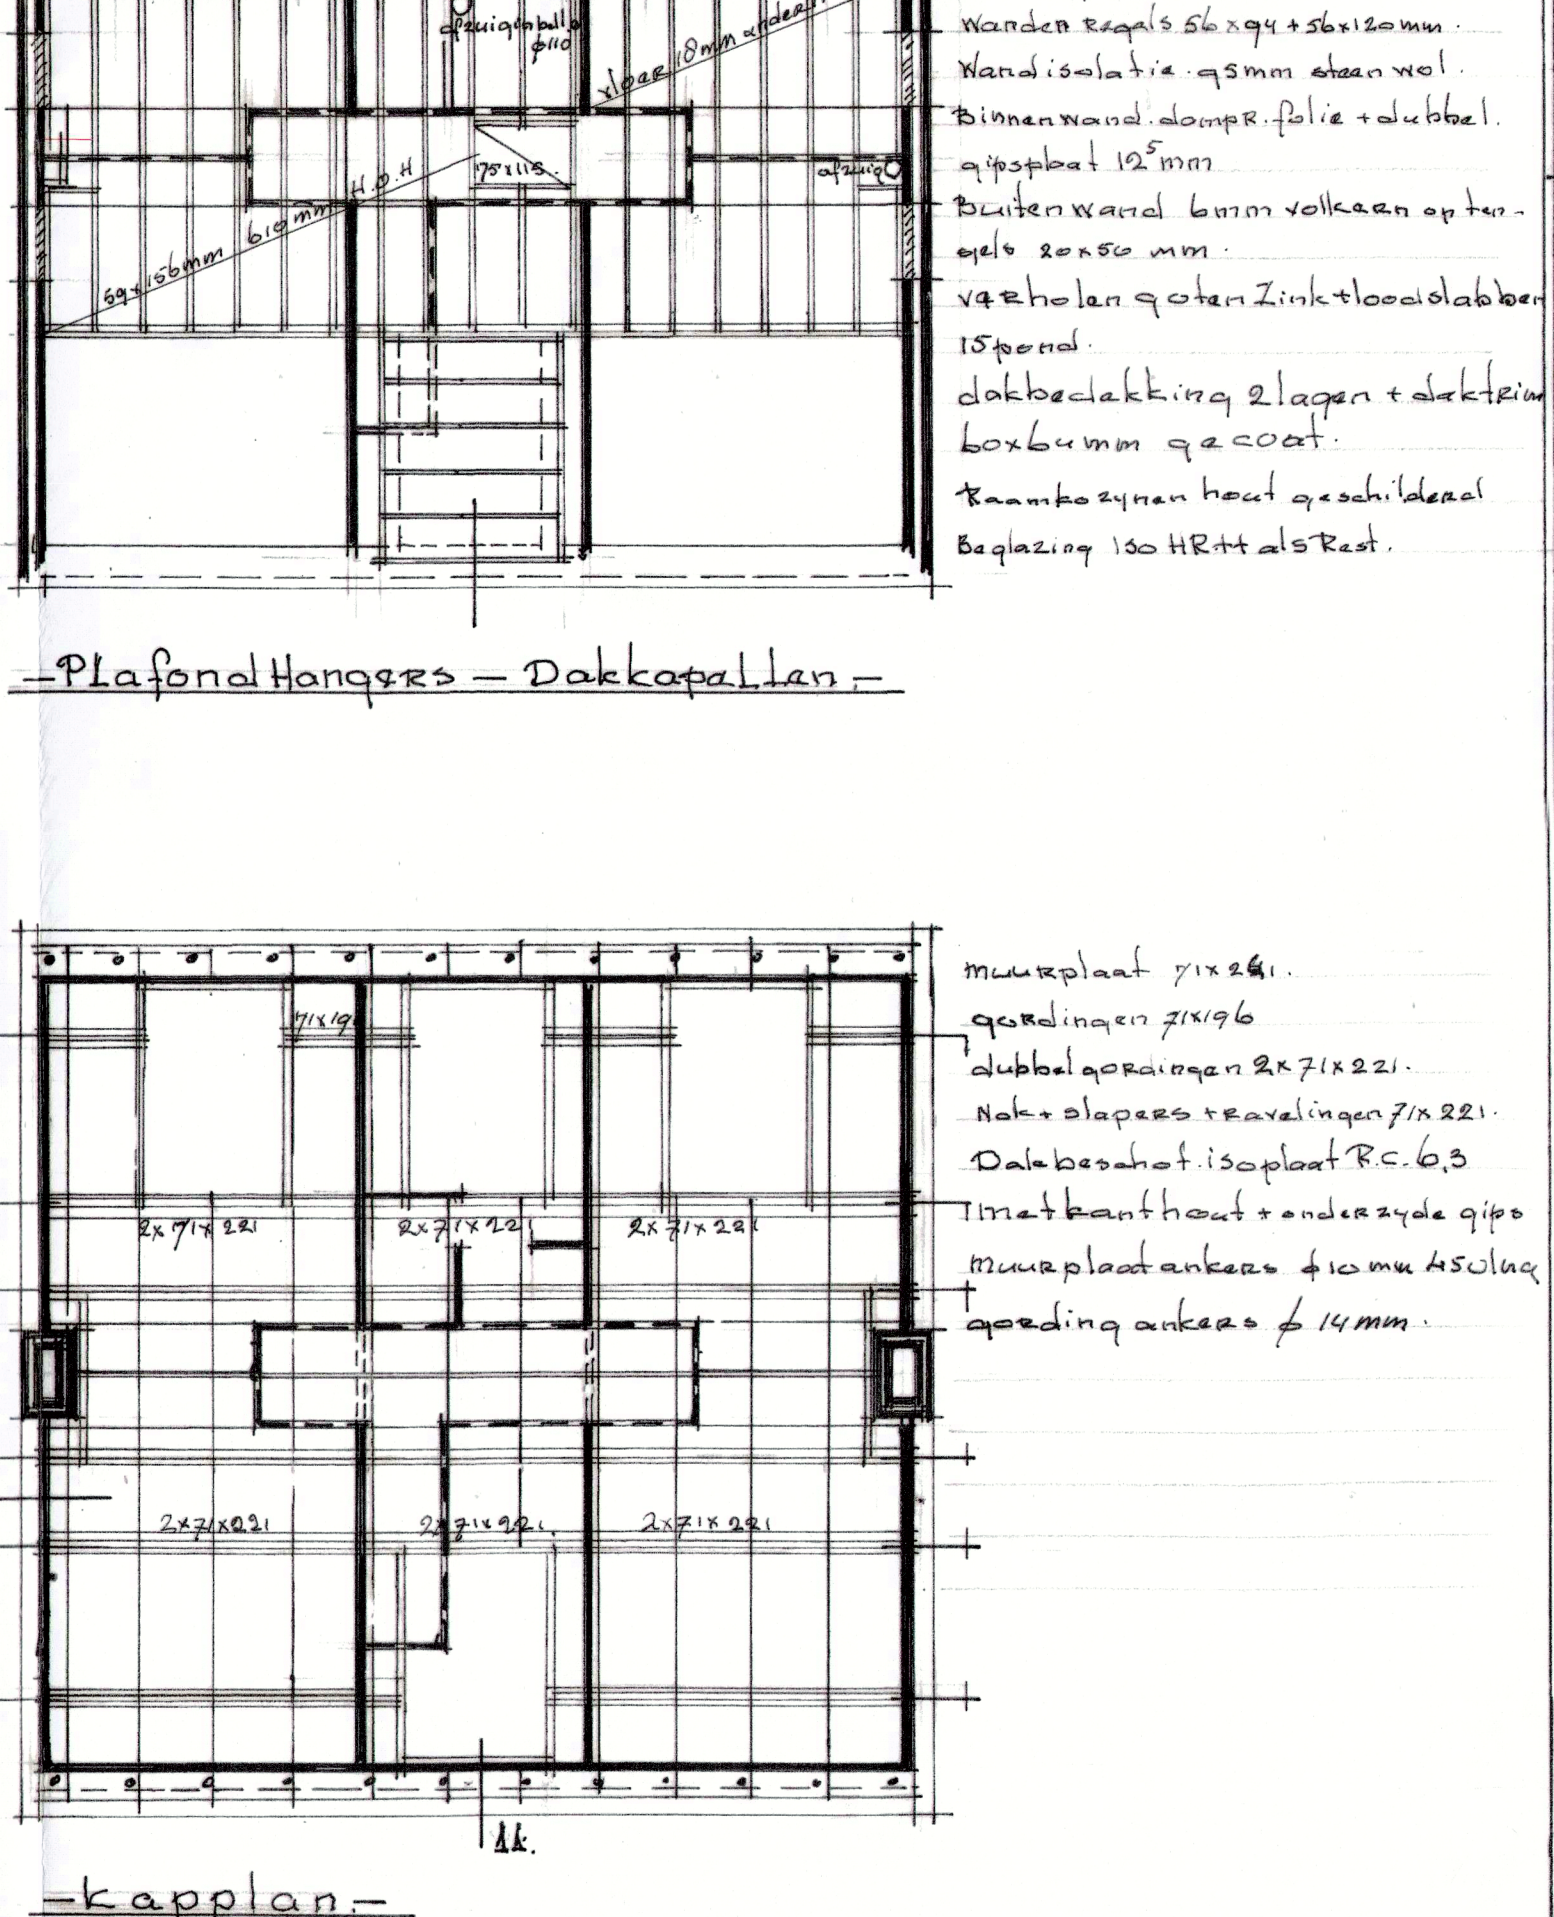 afzuigkanbell.
ø110
vloer 18mm onder
75x115.
afzuig
59x156mm 610mm H.O.H
Wanden Regels 56x94+56x120mm.
Wandisolatie. 95mm steenwol.
Binnenwand. dampr. folie + dubbel.
gipsplaat 12⁵mm
Buitenwand 6mm volkern op ten-
gels 20x50 mm.
verholen goten Zink+loodslabben
15pond.
dakbedekking 2lagen + daktrim
60x64mm gecoat.
Raamkozynen hout geschilderd
Beglazing iso HR++ als Rest.
-PLafondHangers - DakkapeLLen.-
71x19
2x71x221
2x71x221
2x71x221
2x71x221
2x71x221.
2x71x221
muurplaat 71x
gordingen 71x196
dubbelgordingen 2x71x221.
Nok + slapers + ravelingen 71x221.
Dakbeschot. isoplaat R.C. 6,3
met kanthout + onderzyde gips
Muurplaatankers ø10mm 450lng
gording ankers ø 14mm.
-kapplan.-